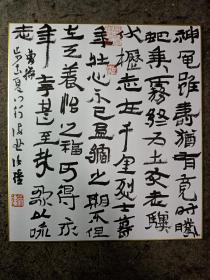 神龟雖壽猶有竟时騰
蛇乘霧经为土灰老驥
伏櫪志在千里烈士暮
年壮心不已盈縮之期不但
在天養怡之福可得永
年幸甚至哉歌以咏
志 曹操